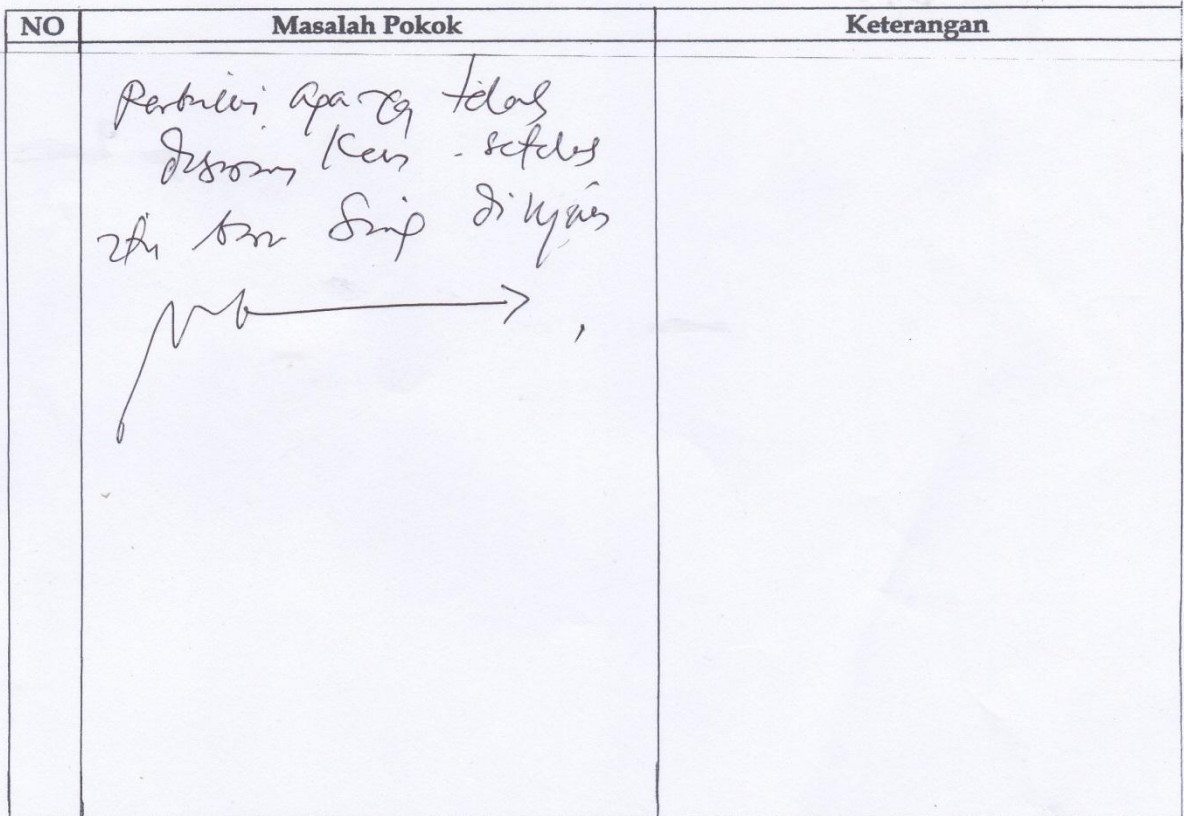 NO Masalah Pokok Keterangan
Perbaiki apa yg telah
Kan. setelah
itu siap diujikan